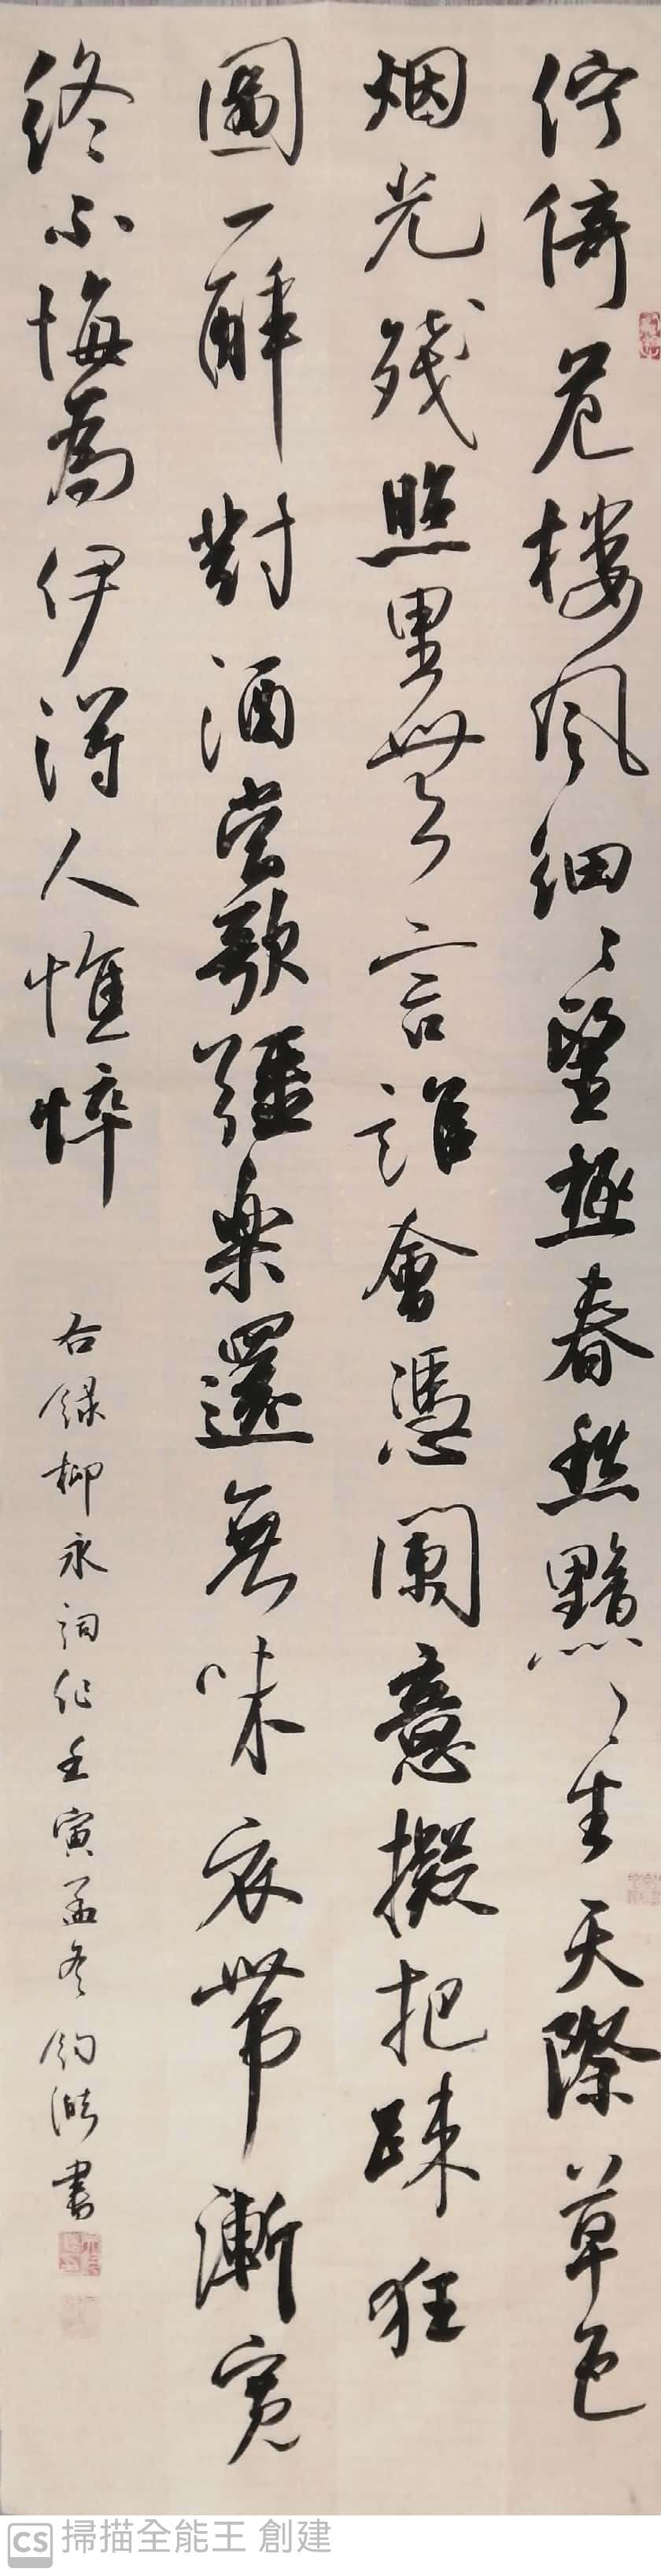 佇倚危樓風細〻望極春愁黯〻生天際草色
烟光殘照里無言誰會憑闌意擬把疎狂
圖一醉對酒當歌強樂還無味衣帶漸寬
終不悔為伊得人憔悴
右錄柳永詞作壬寅孟冬 書
CS 掃描全能王 創建